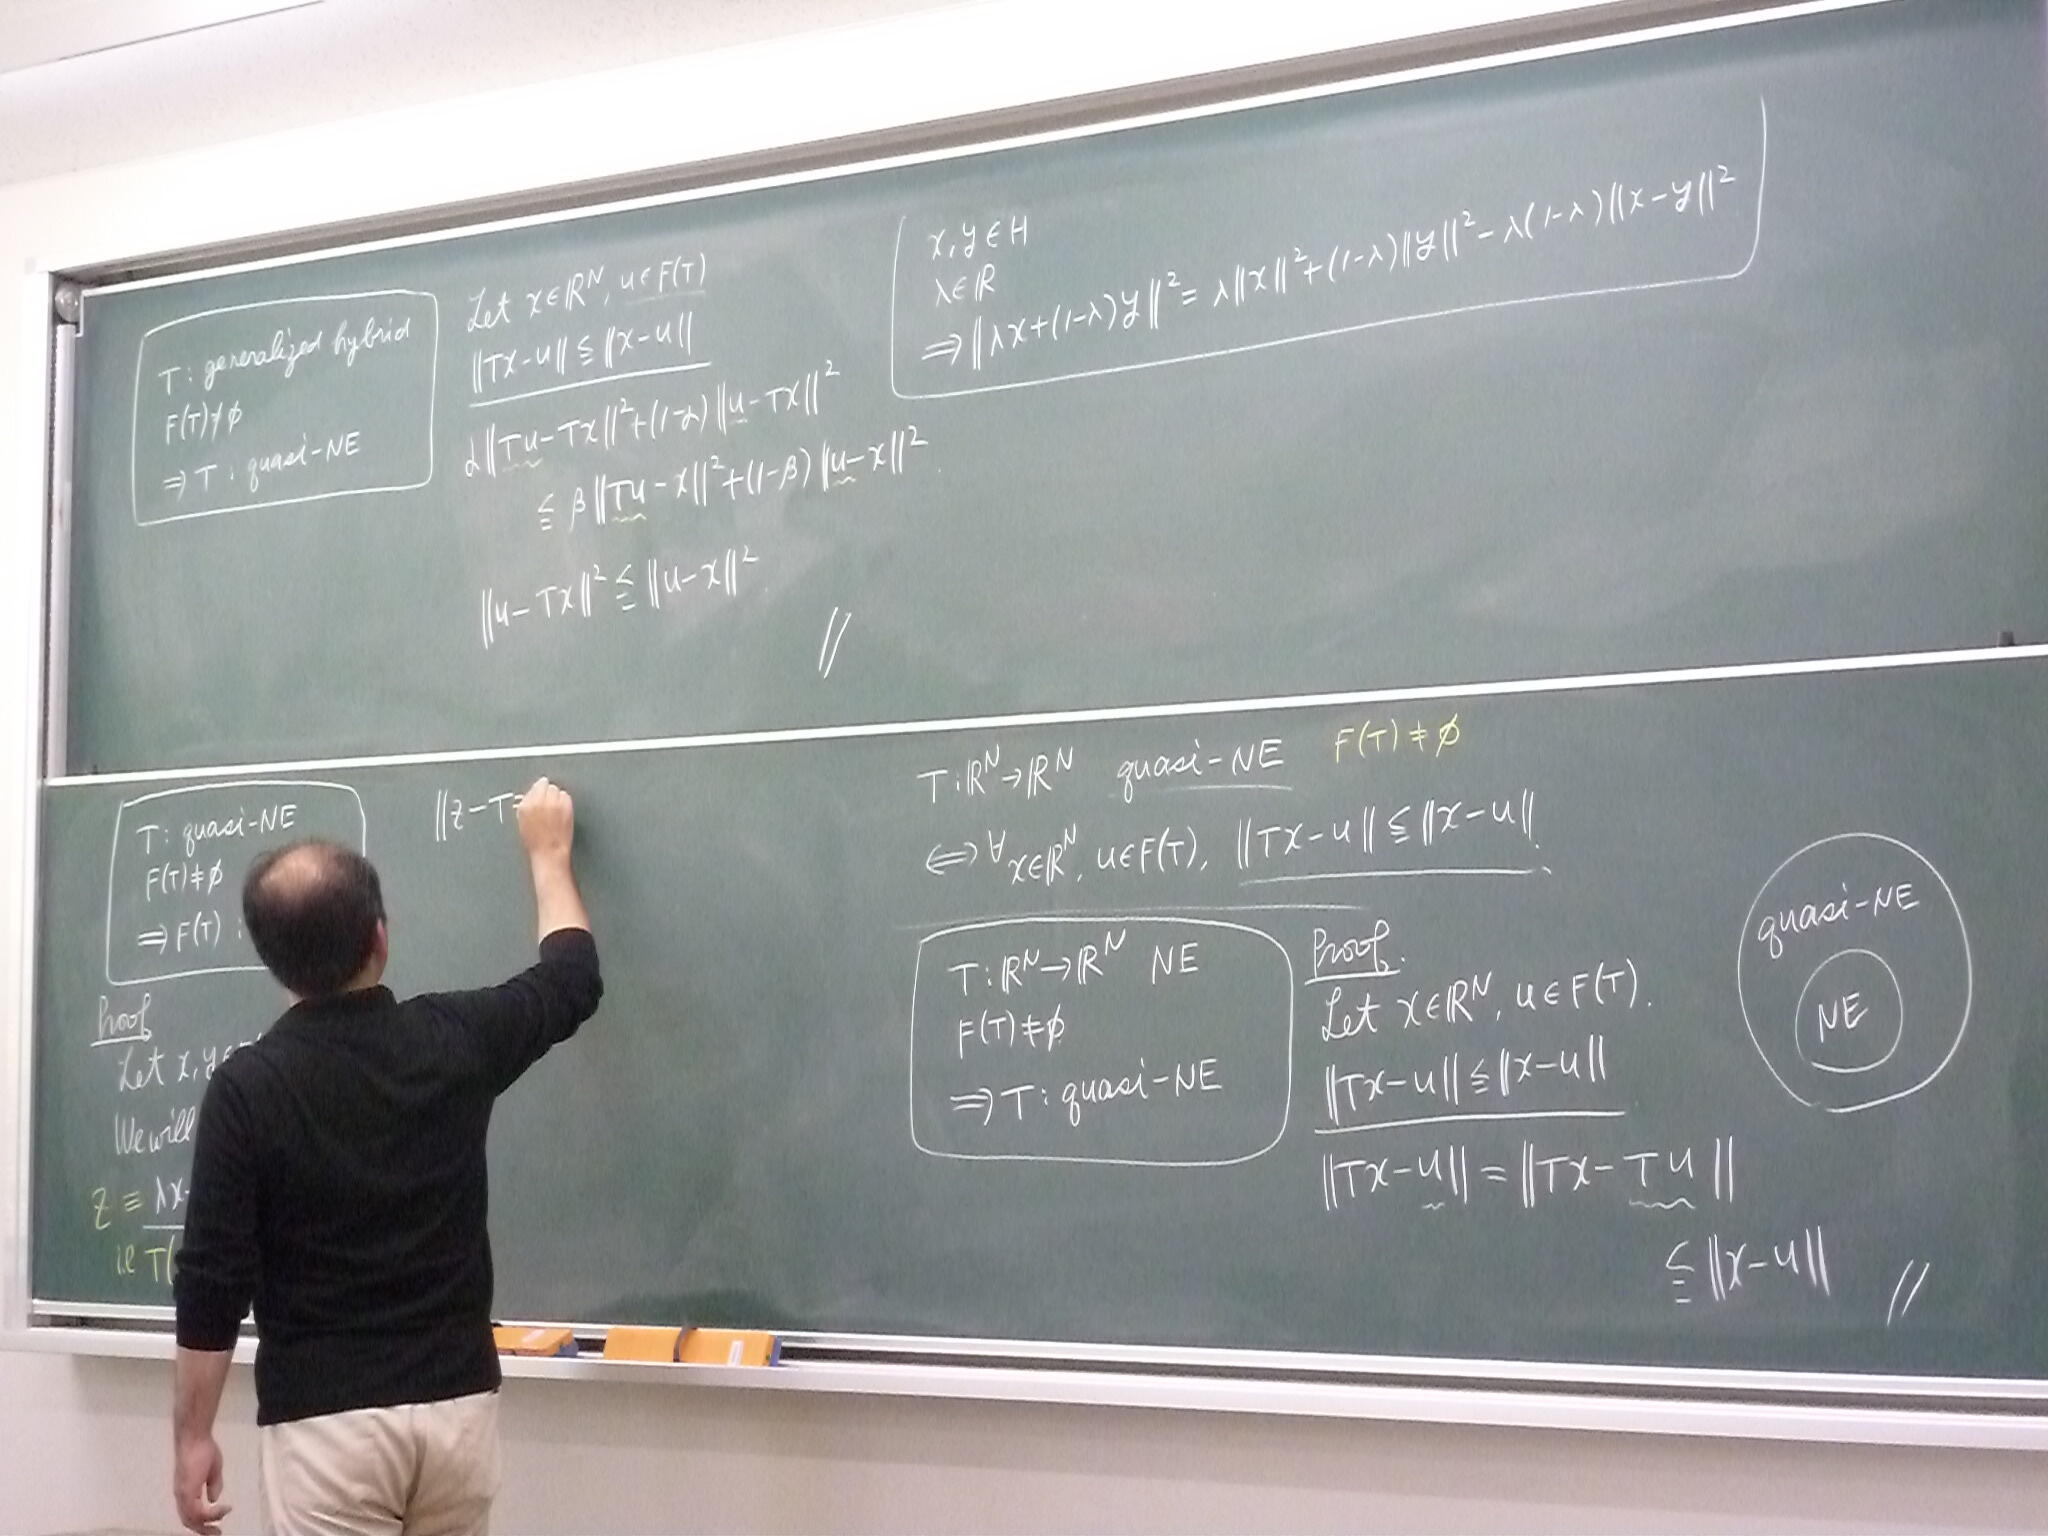 T: generalized hybrid
F(T)≠φ
⇒ T: quasi-NE
Let x∈ℝᴺ, u∈F(T)
‖Tx-u‖≦‖x-u‖
α‖Tu-Tx‖²+(1-α)‖u-Tx‖²
≦ β‖Tu-x‖²+(1-β)‖u-x‖².
‖u-Tx‖²≦‖u-x‖².
//
x,y∈H
λ∈ℝ
⇒‖λx+(1-λ)y‖²=λ‖x‖²+(1-λ)‖y‖²-λ(1-λ)‖x-y‖²
T: quasi-NE
F(T)≠φ
⇒F(T):
Proof
Let x,y∈
We will
z ≡ λx-
i.e T(
‖z-T
T:ℝᴺ→ℝᴺ quasi-NE F(T)≠φ
⇔ ∀x∈ℝᴺ, u∈F(T), ‖Tx-u‖≦‖x-u‖.
T:ℝᴺ→ℝᴺ NE
F(T)≠φ
⇒T: quasi-NE
Proof.
Let x∈ℝᴺ, u∈F(T).
‖Tx-u‖≦‖x-u‖
‖Tx-u‖=‖Tx-Tu‖
≦‖x-u‖
//
quasi-NE
NE